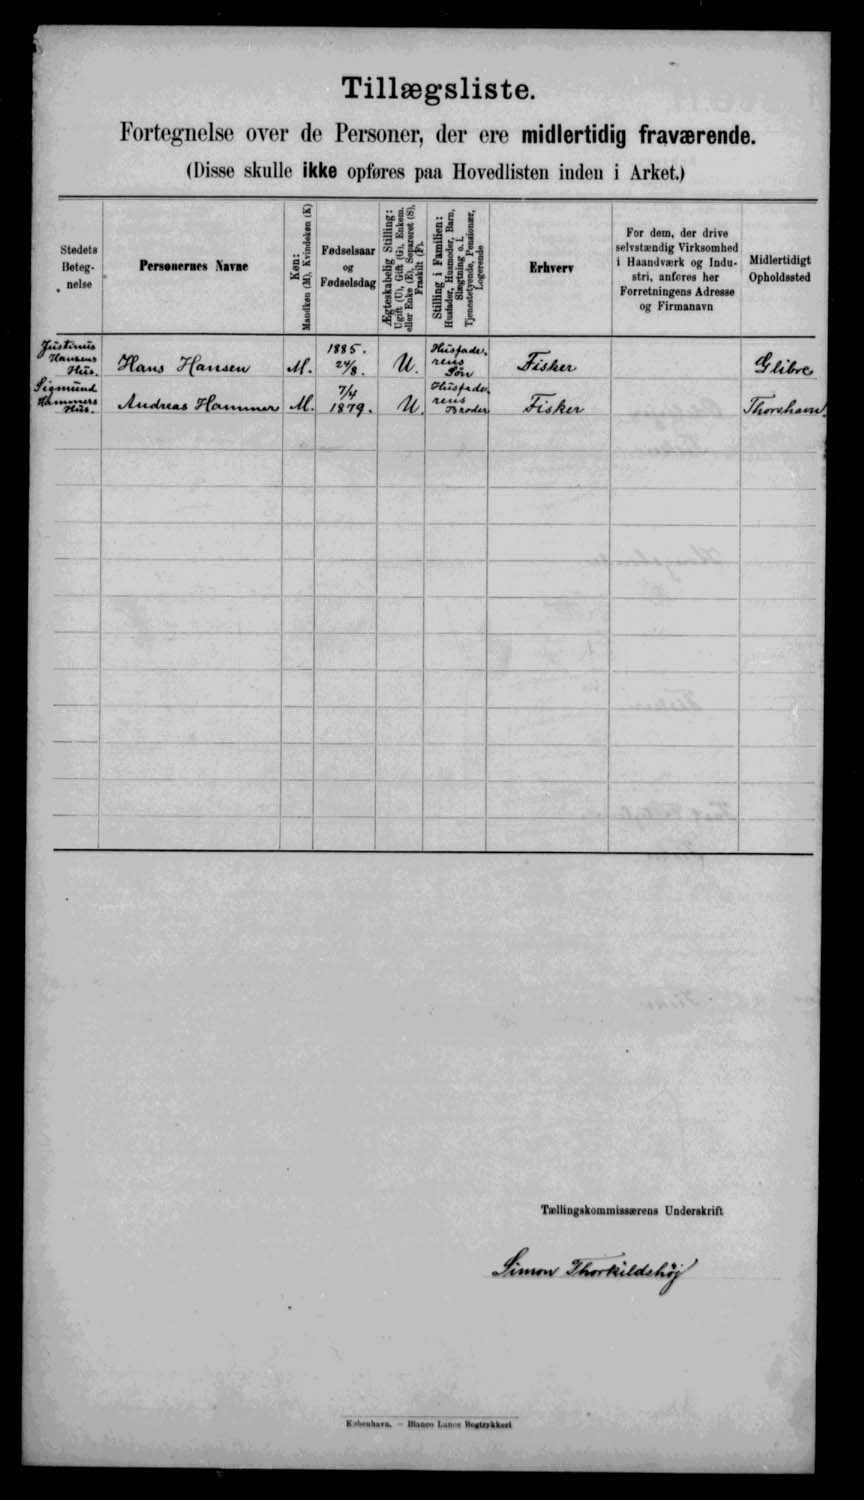 Tillægsliste.
Fortegnelse over de Personer, der ere midlertidig fraværende.
(Disse skulle ikke opføres paa Hovedlisten inden i Arket.)
Stedets
Beteg-
nelse
Personernes Navne
Køn:
Mandkøn (M), Kvindekøn (K)
Fødselsaar
og
Fødselsdag
Ægteskabelig Stilling:
Ugift (U), Gift (G), Enkem.
eller Enke (E), Separeret (S),
Fraskilt (F).
Stilling i Familien:
Husfader, Husmoder, Barn,
Slægtning o. l.
Tjenestetyende, Pensionær,
Logerende
Erhverv
For dem, der drive
selvstændig Virksomhed
i Haandværk og Indu-
stri, anføres her
Forretningens Adresse
og Firmanavn
Midlertidigt
Opholdssted
Justinus
Hansens
Hus.
Hans Hansen
M.
1885.
24/8.
U.
Husfade-
rens
Søn
Fisker
Glibre
Sigmund
Hammers
Hus.
Andreas Hammer
M.
7/4
1879.
U.
Husfade-
rens
Broder
Fisker
Thorshavn.
Tællingskommissærens Underskrift
Simon Thorkildshøj
København. — Bianco Lunos Bogtrykkeri